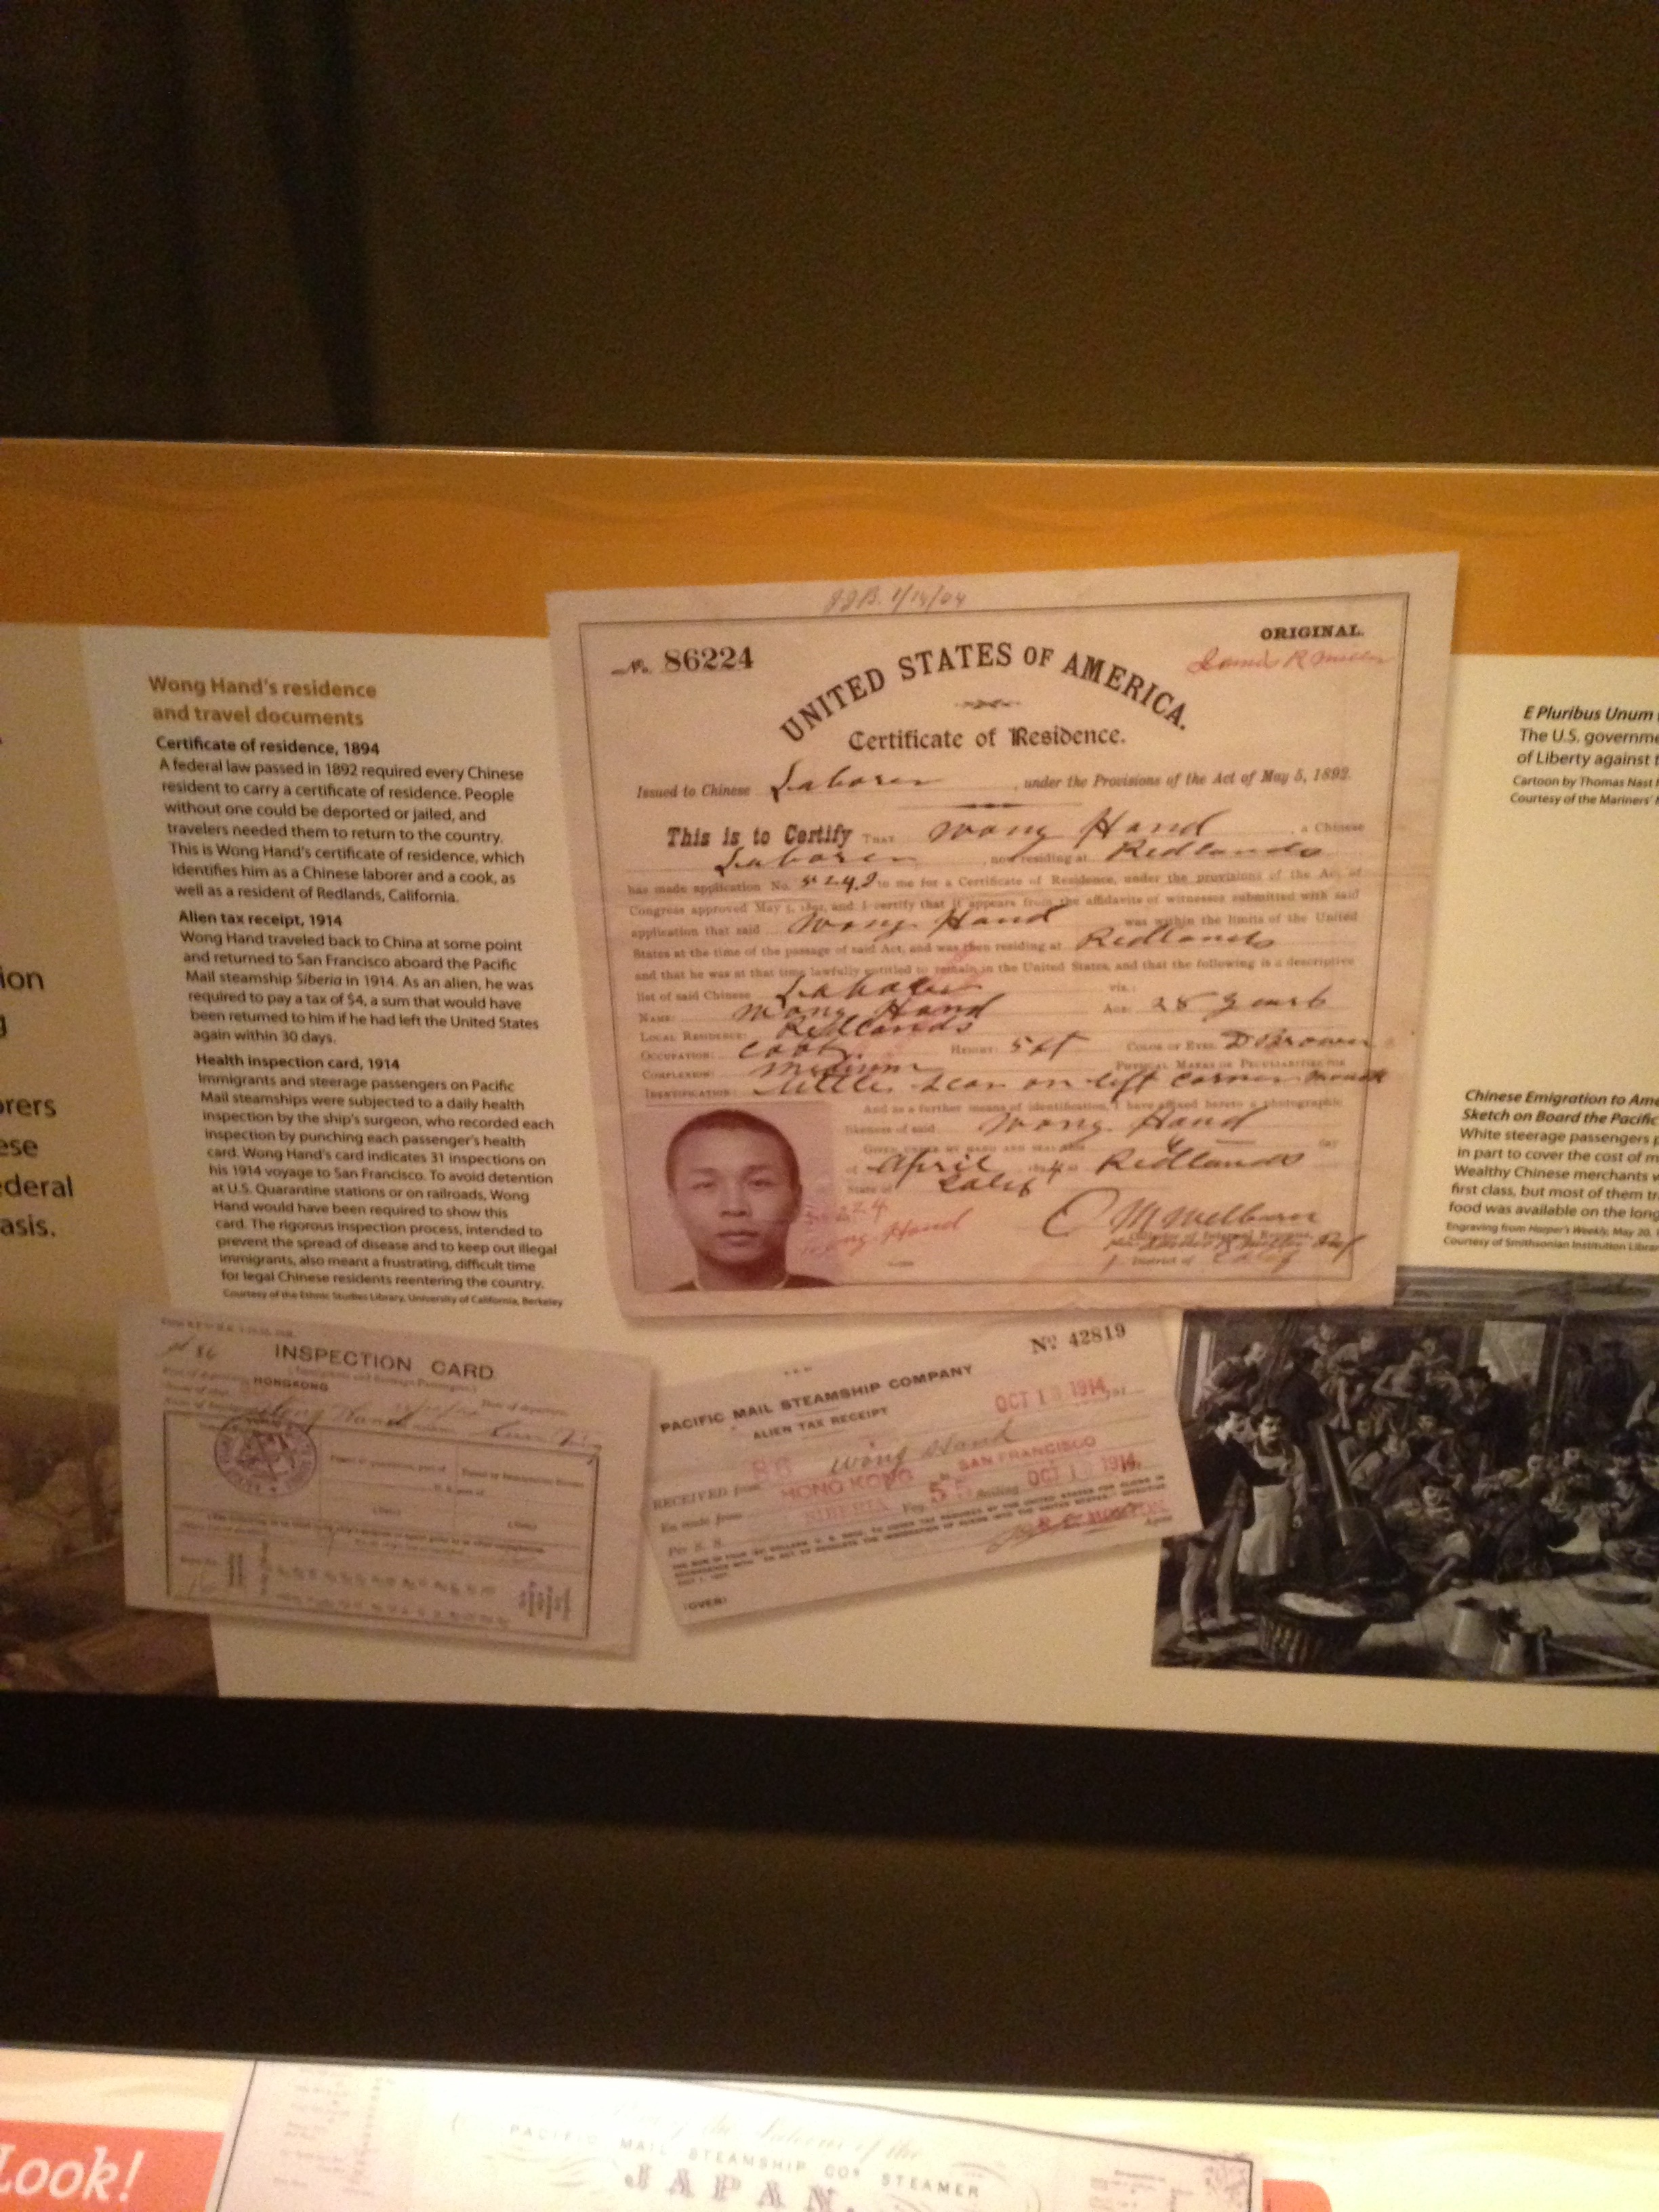 ion
g
orers
ese
ederal
asis.
Wong Hand's residence
and travel documents
Certificate of residence, 1894
A federal law passed in 1892 required every Chinese
resident to carry a certificate of residence. People
without one could be deported or jailed, and
travelers needed them to return to the country.
This is Wong Hand's certificate of residence, which
identifies him as a Chinese laborer and a cook, as
well as a resident of Redlands, California.
Alien tax receipt, 1914
Wong Hand traveled back to China at some point
and returned to San Francisco aboard the Pacific
Mail steamship Siberia in 1914. As an alien, he was
required to pay a tax of $4, a sum that would have
been returned to him if he had left the United States
again within 30 days.
Health inspection card, 1914
Immigrants and steerage passengers on Pacific
Mail steamships were subjected to a daily health
inspection by the ship's surgeon, who recorded each
inspection by punching each passenger's health
card. Wong Hand's card indicates 31 inspections on
his 1914 voyage to San Francisco. To avoid detention
at U.S. Quarantine stations or on railroads, Wong
Hand would have been required to show this
card. The rigorous inspection process, intended to
prevent the spread of disease and to keep out illegal
immigrants, also meant a frustrating, difficult time
for legal Chinese residents reentering the country.
Courtesy of the Ethnic Studies Library, University of California, Berkeley
ORIGINAL.
No. 86224
UNITED STATES OF AMERICA.
Certificate of Residence.
Issued to Chinese Laborer, under the Provisions of the Act of May 5, 1892.
This is to Certify THAT Wong Hand, a Chinese
Laborer, now residing at Redlands
has made application No. to me for a Certificate of Residence, under the provisions of the Act of
Congress approved May 5, 1892, and I certify that it appears from the affidavits of witnesses submitted with said
application that said Wong Hand was within the limits of the United
States at the time of the passage of said Act, and was then residing at Redlands
and that he was at that time lawfully entitled to remain in the United States, and that the following is a descriptive
list of said Chinese Laborer viz.:
NAME: Wong Hand AGE: 28 years
LOCAL RESIDENCE: Redlands
OCCUPATION: Cook. HEIGHT: COLOR OF EYES: D Brown
COMPLEXION: Medium PHYSICAL MARKS OR PECULIARITIES FOR
IDENTIFICATION: Little scar on left corner mouth
And as a further means of identification, I have affixed hereto a photographic
likeness of said Wong Hand
GIVEN UNDER MY HAND AND SEAL day
of April Redlands
State of Calif
Wong Hand
District of Calif
INSPECTION CARD
HONGKONG
Wong Hand
No 42819
PACIFIC MAIL STEAMSHIP COMPANY
ALIEN TAX RECEIPT
OCT 1 1914
RECEIVED from 86 Wong Hand
En route from HONG KONG SAN FRANCISCO
Per S. S. SIBERIA Voy. 55 Sailing OCT 1 1914
(OVER)
E Pluribus Unum
The U.S. governme
of Liberty against t
Cartoon by Thomas Nast
Courtesy of the Mariners'
Chinese Emigration to Ame
Sketch on Board the Pacific
White steerage passengers p
in part to cover the cost of m
Wealthy Chinese merchants w
first class, but most of them tr
food was available on the long
Engraving from Harper's Weekly, May 20,
Courtesy of Smithsonian Institution Librar
Look!
PACIFIC MAIL STEAMSHIP COS STEAMER
JAPAN.